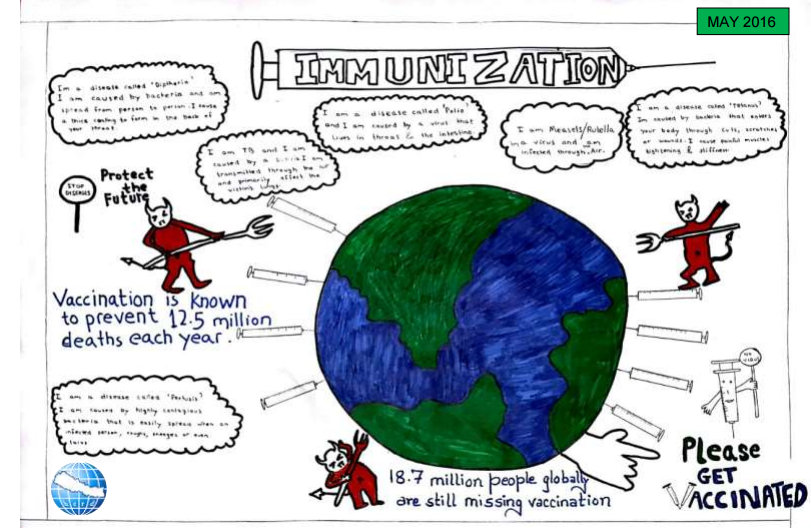 MAY 2016
IMMUNIZATION
Im a disease called 'Diptheria'
I am caused by bacteria and am
spread from person to person. I cause
a thick coating to form in the back of
your throat.
I am TB and I am
caused by a I am
transmitted through the air
and primarily affect the
victim's lungs.
I am a disease called 'Polio'
and I am caused by a virus that
lives in throat & the intestine.
I am Measels/Rubella
a virus and am
infected through Air.
I am a disease called 'Tetanus'
Im caused by bacteria that enters
your body through cuts, scratches
or wounds. I cause painful muscles
tightening & stiffness
STOP
DISEASES
Protect
the
Future
Vaccination is known
to prevent 12.5 million
deaths each year.
I am a disease called 'Pertusis'
I am caused by highly contagious
bacteria that is easily spread when an
infected person, coughs, sneezes or even
18.7 million people globally
are still missing vaccination
NO
VIRUS
Please
GET
VACCINATED